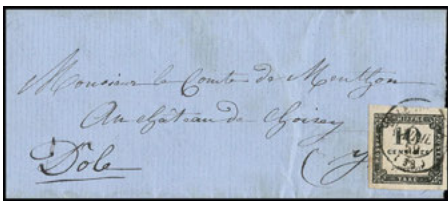 Monsieur le Comte de Menthon
Au château de Choisey
Dole
CHIFFRE
10
CENTIMES
TAXE